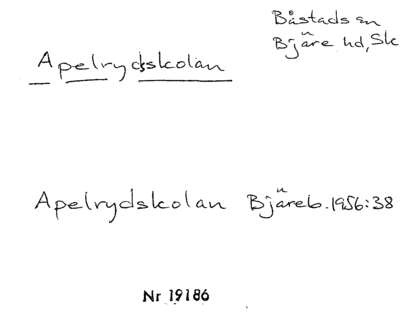 Båstads sn
Bjäre hd, Sk
Apelrydsskolan
Apelrydskolan Bjäreb. 1956:38
Nr 19186